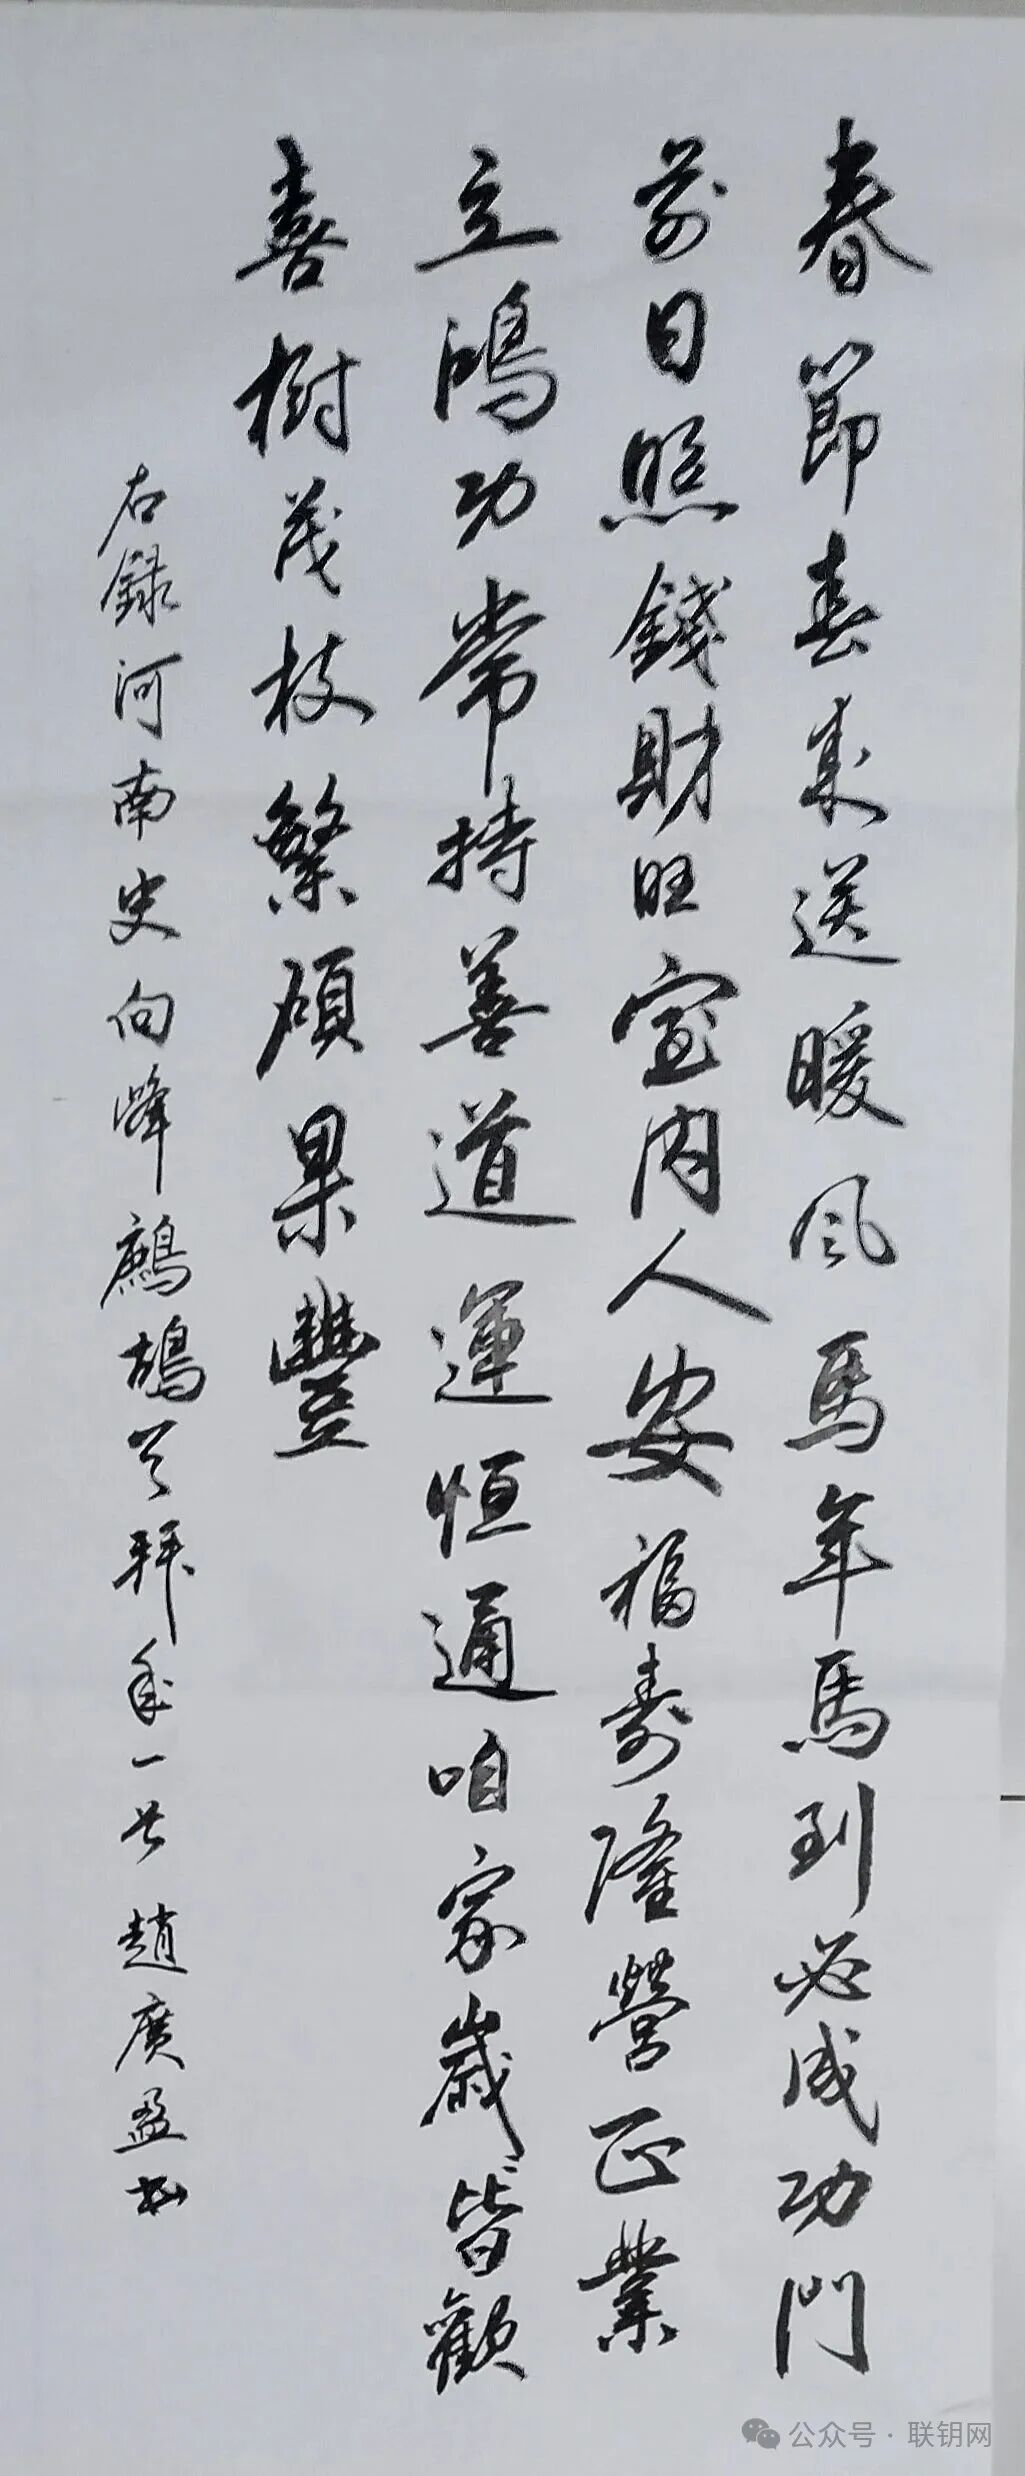 春節春来送暖风馬年馬到必成功門
前日照錢財旺室内人安福壽隆營正業
立鴻功常持善道運恒通咱家歲皆歡
喜樹茂枝繁碩果豐
右録河南史向峰鷓鴣天拜年一首趙廣盈书
公众号·联钥网